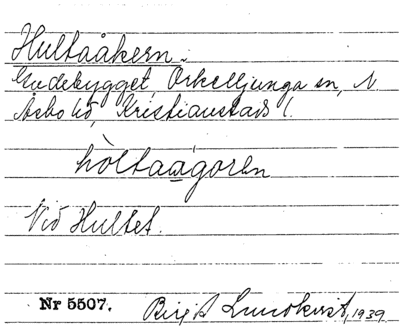 Hultaåkern.
Gudebygget, Örkelljunga sn, N
Åsbo hd, Kristianstads l.
hòltaa̲goren
Vid Hultet.
Nr 5507. Birgit Lundkvist, 1939